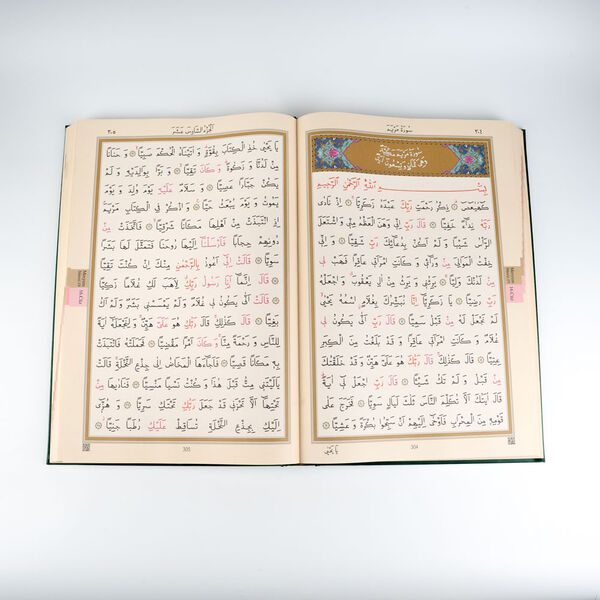 ٣٠٤
سُورَةُ مَرْيَمَ
سُورَةُ مَرْيَمَ مَكِّيَّةٌ
وَهِيَ ثَمَانٍ وَتِسْعُونَ اٰيَةً
بِسْمِ اللّٰهِ الرَّحْمٰنِ الرَّحِيمِ
كٓهٰيٰعٓصٓ ذِكْرُ رَحْمَتِ رَبِّكَ عَبْدَهُ زَكَرِيَّا اِذْ نَادٰى
رَبَّهُ نِدَٓاءً خَفِيًّا قَالَ رَبِّ اِنِّي وَهَنَ الْعَظْمُ مِنِّي وَاشْتَعَلَ
الرَّأْسُ شَيْبًا وَلَمْ اَكُنْ بِدُعَٓائِكَ رَبِّ شَقِيًّا وَاِنِّي
خِفْتُ الْمَوَالِيَ مِنْ وَرَٓائِي وَكَانَتِ امْرَاَتِي عَاقِرًا فَهَبْ لِي
مِنْ لَدُنْكَ وَلِيًّا يَرِثُنِي وَيَرِثُ مِنْ اٰلِ يَعْقُوبَ وَاجْعَلْهُ
رَبِّ رَضِيًّا يَا زَكَرِيَّٓا اِنَّا نُبَشِّرُكَ بِغُلَامٍ اسْمُهُ يَحْيٰى
لَمْ نَجْعَلْ لَهُ مِنْ قَبْلُ سَمِيًّا قَالَ رَبِّ اَنّٰى يَكُونُ لِي
غُلَامٌ وَكَانَتِ امْرَاَتِي عَاقِرًا وَقَدْ بَلَغْتُ مِنَ الْكِبَرِ
عِتِيًّا قَالَ كَذٰلِكَ قَالَ رَبُّكَ هُوَ عَلَيَّ هَيِّنٌ وَقَدْ خَلَقْتُكَ
مِنْ قَبْلُ وَلَمْ تَكُ شَيْئًا قَالَ رَبِّ اجْعَلْ لِي اٰيَةً
قَالَ اٰيَتُكَ اَلَّا تُكَلِّمَ النَّاسَ ثَلٰثَ لَيَالٍ سَوِيًّا فَخَرَجَ عَلٰى
قَوْمِهِ مِنَ الْمِحْرَابِ فَاَوْحٰٓى اِلَيْهِمْ اَنْ سَبِّحُوا بُكْرَةً وَعَشِيًّا
يَا يَحْيٰى
304
اَلْجُزْءُ السَّادِسَ عَشَرَ
٣٠٥
يَا يَحْيٰى خُذِ الْكِتَابَ بِقُوَّةٍ وَاٰتَيْنَاهُ الْحُكْمَ صَبِيًّا وَحَنَانًا
مِنْ لَدُنَّا وَزَكٰوةً وَكَانَ تَقِيًّا وَبَرًّا بِوَالِدَيْهِ وَلَمْ
يَكُنْ جَبَّارًا عَصِيًّا وَسَلَامٌ عَلَيْهِ يَوْمَ وُلِدَ وَيَوْمَ
يَمُوتُ وَيَوْمَ يُبْعَثُ حَيًّا وَاذْكُرْ فِي الْكِتَابِ مَرْيَمَ
اِذِ انْتَبَذَتْ مِنْ اَهْلِهَا مَكَانًا شَرْقِيًّا فَاتَّخَذَتْ مِنْ
دُونِهِمْ حِجَابًا فَاَرْسَلْنَٓا اِلَيْهَا رُوحَنَا فَتَمَثَّلَ لَهَا بَشَرًا
سَوِيًّا قَالَتْ اِنِّٓي اَعُوذُ بِالرَّحْمٰنِ مِنْكَ اِنْ كُنْتَ تَقِيًّا
قَالَ اِنَّمَٓا اَنَا رَسُولُ رَبِّكِ لِاَهَبَ لَكِ غُلَامًا زَكِيًّا
قَالَتْ اَنّٰى يَكُونُ لِي غُلَامٌ وَلَمْ يَمْسَسْنِي بَشَرٌ وَلَمْ اَكُ
بَغِيًّا قَالَ كَذٰلِكِ قَالَ رَبُّكِ هُوَ عَلَيَّ هَيِّنٌ وَلِنَجْعَلَهُٓ اٰيَةً
لِلنَّاسِ وَرَحْمَةً مِنَّا وَكَانَ اَمْرًا مَقْضِيًّا فَحَمَلَتْهُ فَانْتَبَذَتْ
بِهِ مَكَانًا قَصِيًّا فَاَجَٓاءَهَا الْمَخَاضُ اِلٰى جِذْعِ النَّخْلَةِ قَالَتْ
يَا لَيْتَنِي مِتُّ قَبْلَ هٰذَا وَكُنْتُ نَسْيًا مَنْسِيًّا فَنَادٰيهَا مِنْ
تَحْتِهَٓا اَلَّا تَحْزَنِي قَدْ جَعَلَ رَبُّكِ تَحْتَكِ سَرِيًّا وَهُزِّٓي
اِلَيْكِ بِجِذْعِ النَّخْلَةِ تُسَاقِطْ عَلَيْكِ رُطَبًا جَنِيًّا
305